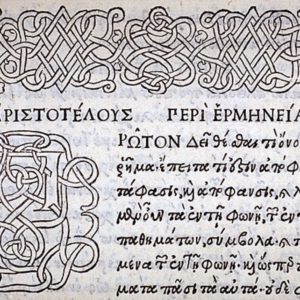 ΑΡΙΣΤΟΤΕΛΟΥΣ ΠΕΡΙ ἙΡΜΗΝΕΙΑ
ΡΩΤΟΝ Δεῖ θέσθαι τί ὄνο
ῥῆμα. ἔπειτα τί ἐστιν ἀπόφ
τάφασις, καὶ ἀπόφανσις, καὶ
μὲν οὖν τὰ ἐν τῇ φωνῇ, τῶν
παθημάτων, σύμβολα.
μενα τῶν ἐν τῇ φωνῇ. καὶ ὥσπερ
ματα πᾶσι τὰ αὐτὰ. οὐδὲ